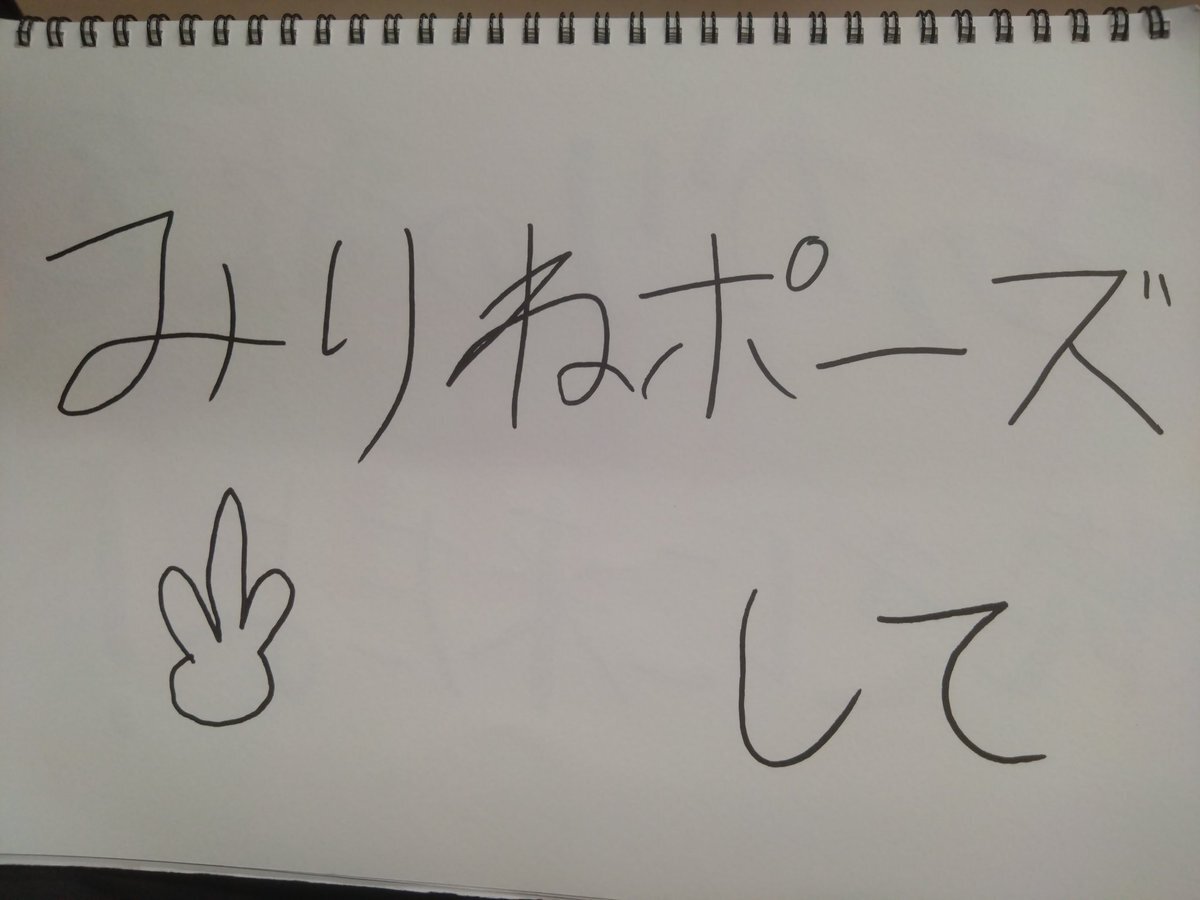 みりねポーズ
して